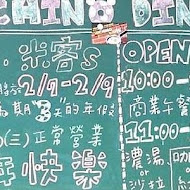 米客s
2/7-2/9
期"3天"的年假
(三)正常營業
年快樂
OPEN
10:00-
商業午餐
11:00-
濃湯
or
沙拉